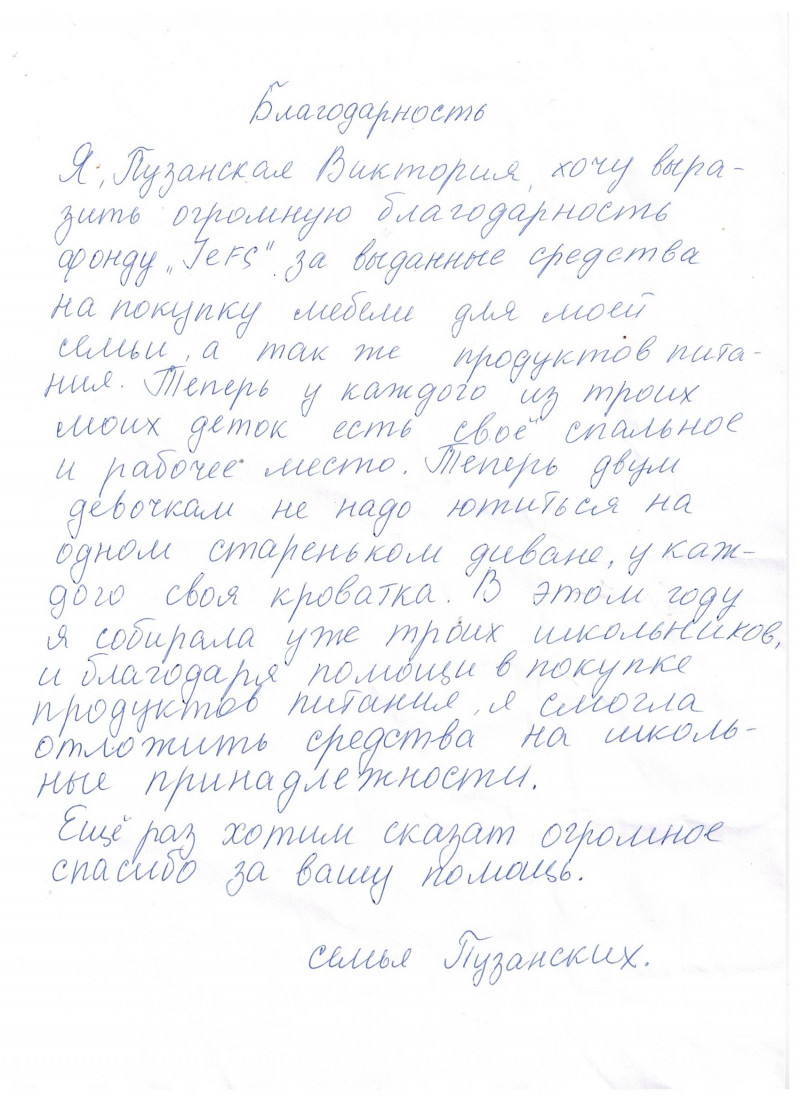 Благодарность
Я, Пузанская Виктория, хочу выра-
зить огромную благодарность
фонду „Jers" за выданные средства
на покупку мебели для моей
семьи, а так же продуктов пита-
ния. Теперь у каждого из троих
моих деток есть своё спальное
и рабочее место. Теперь двум
девочкам не надо ютиться на
одном стареньком диване, у каж-
дого своя кроватка. В этом году
я собирала уже троих школьников,
и благодаря помощи в покупке
продуктов питания, я смогла
отложить средства на школь-
ные принадлежности.
Ещё раз хотим сказат огромное
спасибо за вашу помощь.
семья Пузанских.